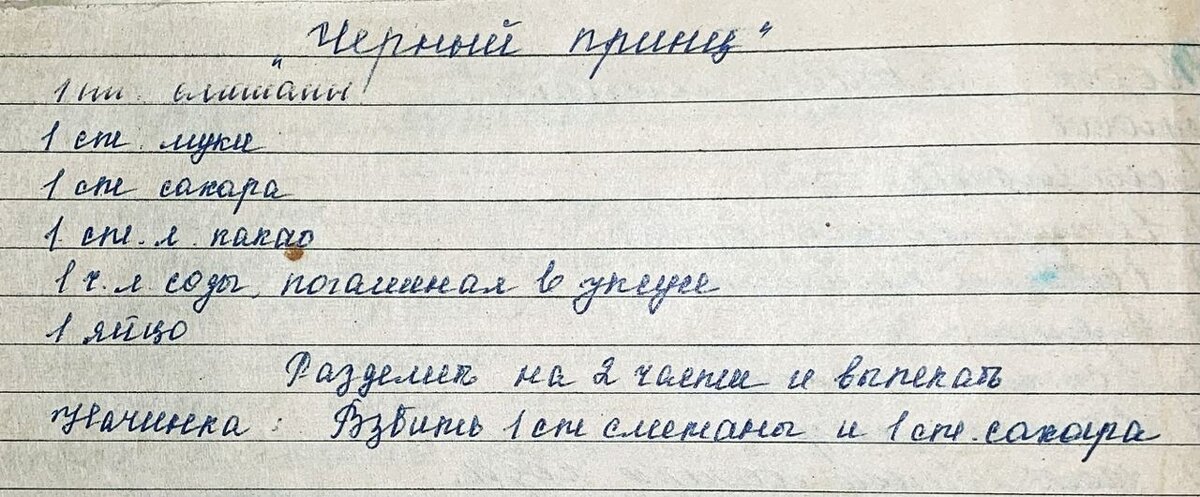 "Черный принц"
1 ст. сметаны
1 ст. муки
1 ст сахара
1 ст. л. какао
1 ч. л. соды, погашеная в уксусе
1 яйцо
Разделить на 2 части и выпекать
Начинка: Взбить 1 ст сметаны и 1 ст. сахара